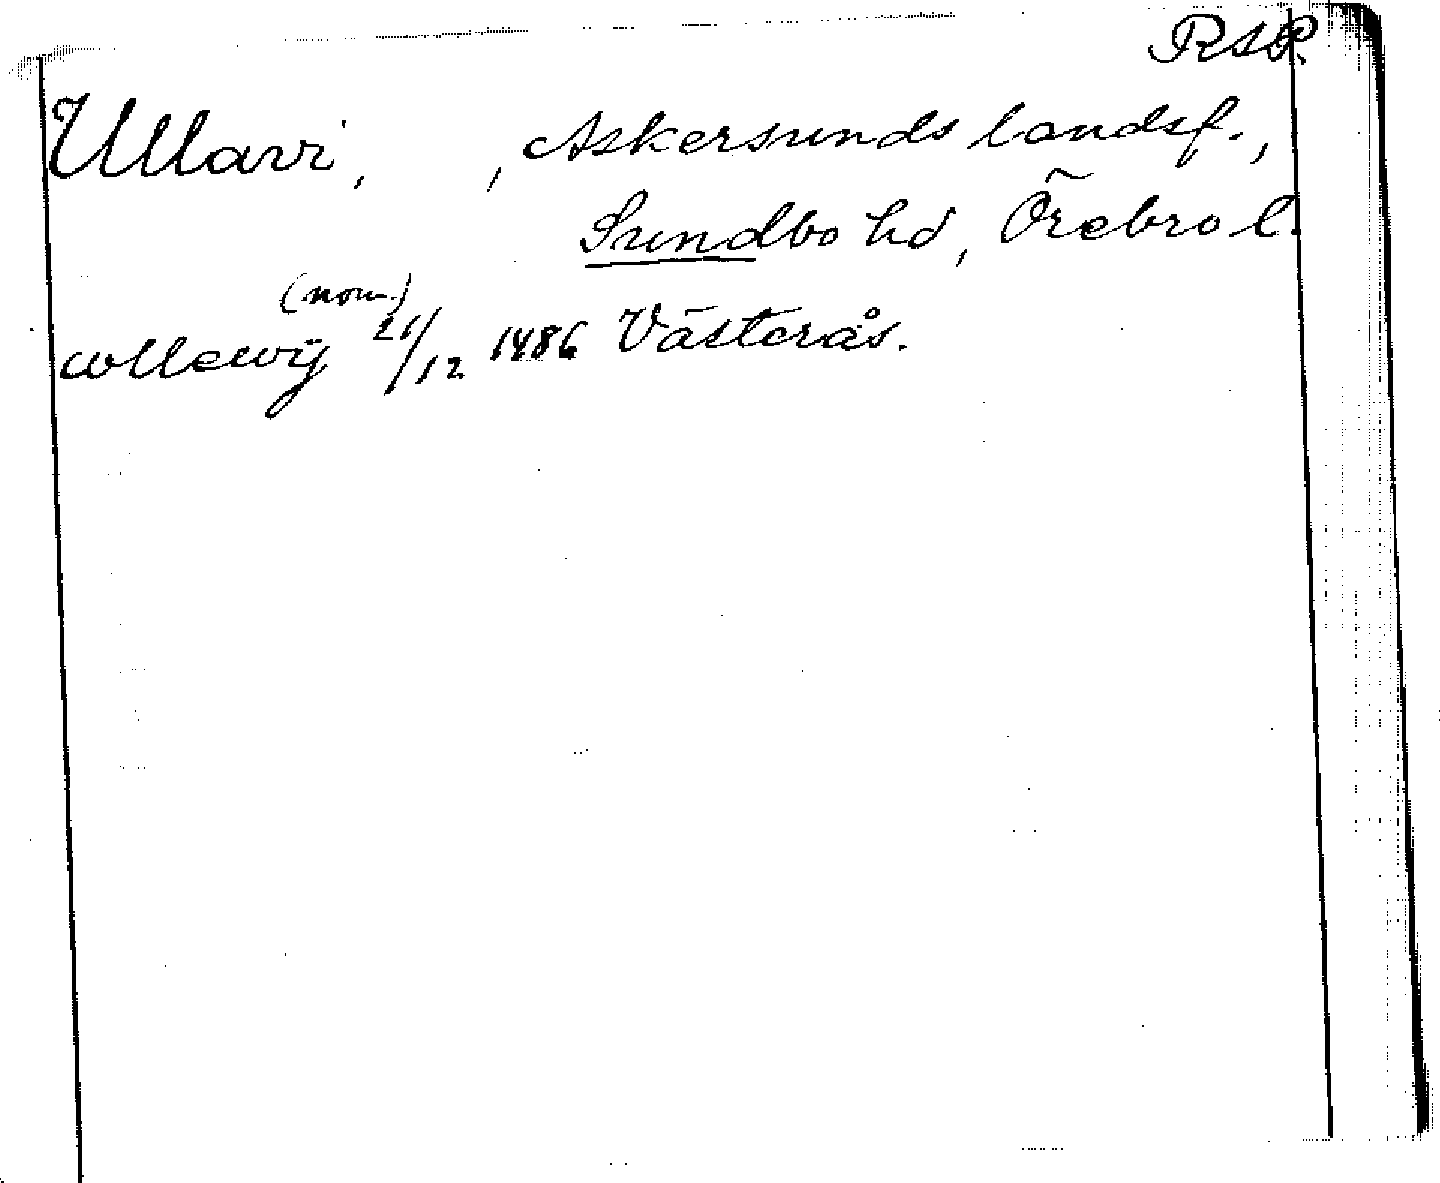 RAP.
Ullavi, , Askersunds landsf.,
Sundbo hd, Örebro l.
(nom.)
wllewÿ 21/12 1486 Västerås.